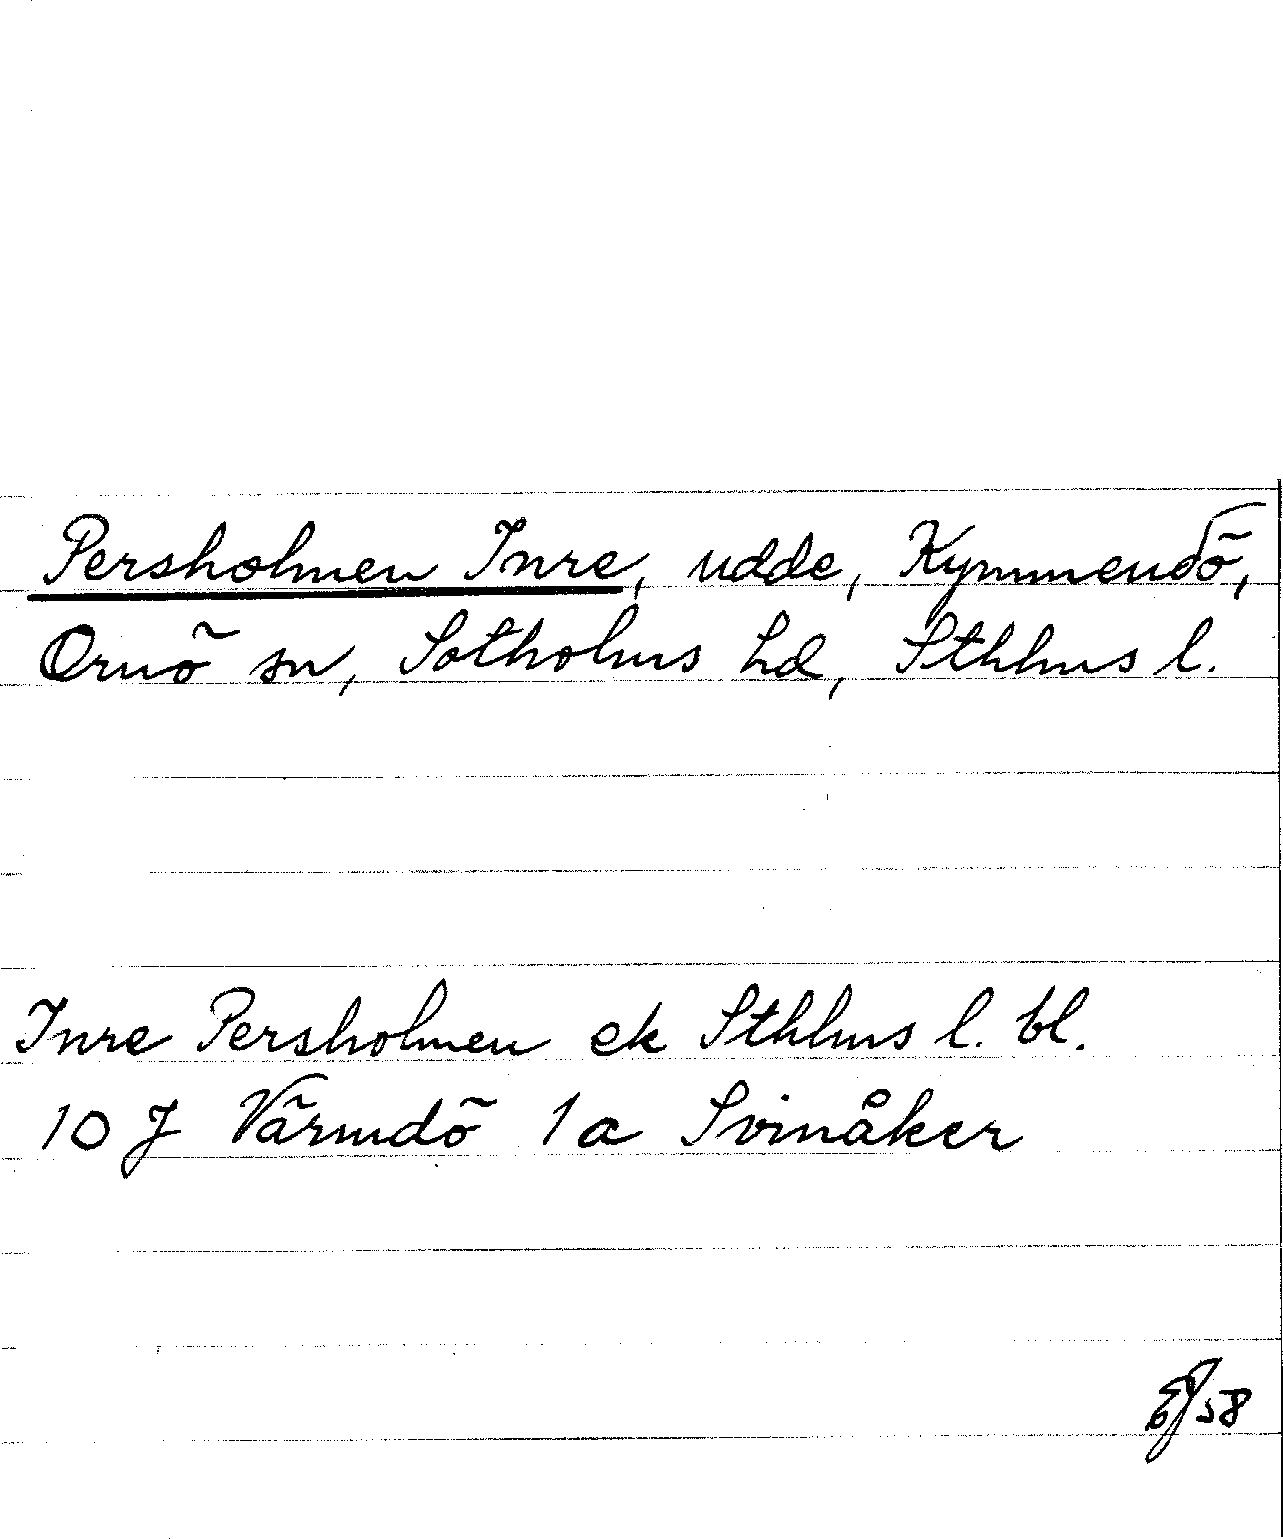 Persholmen Inre, udde, Kymmendö,
Ornö sn, Sotholms hd, Sthlms l.
Inre Persholmen ek Sthlms l. bl.
10 J Värmdö 1a Svinåker
58